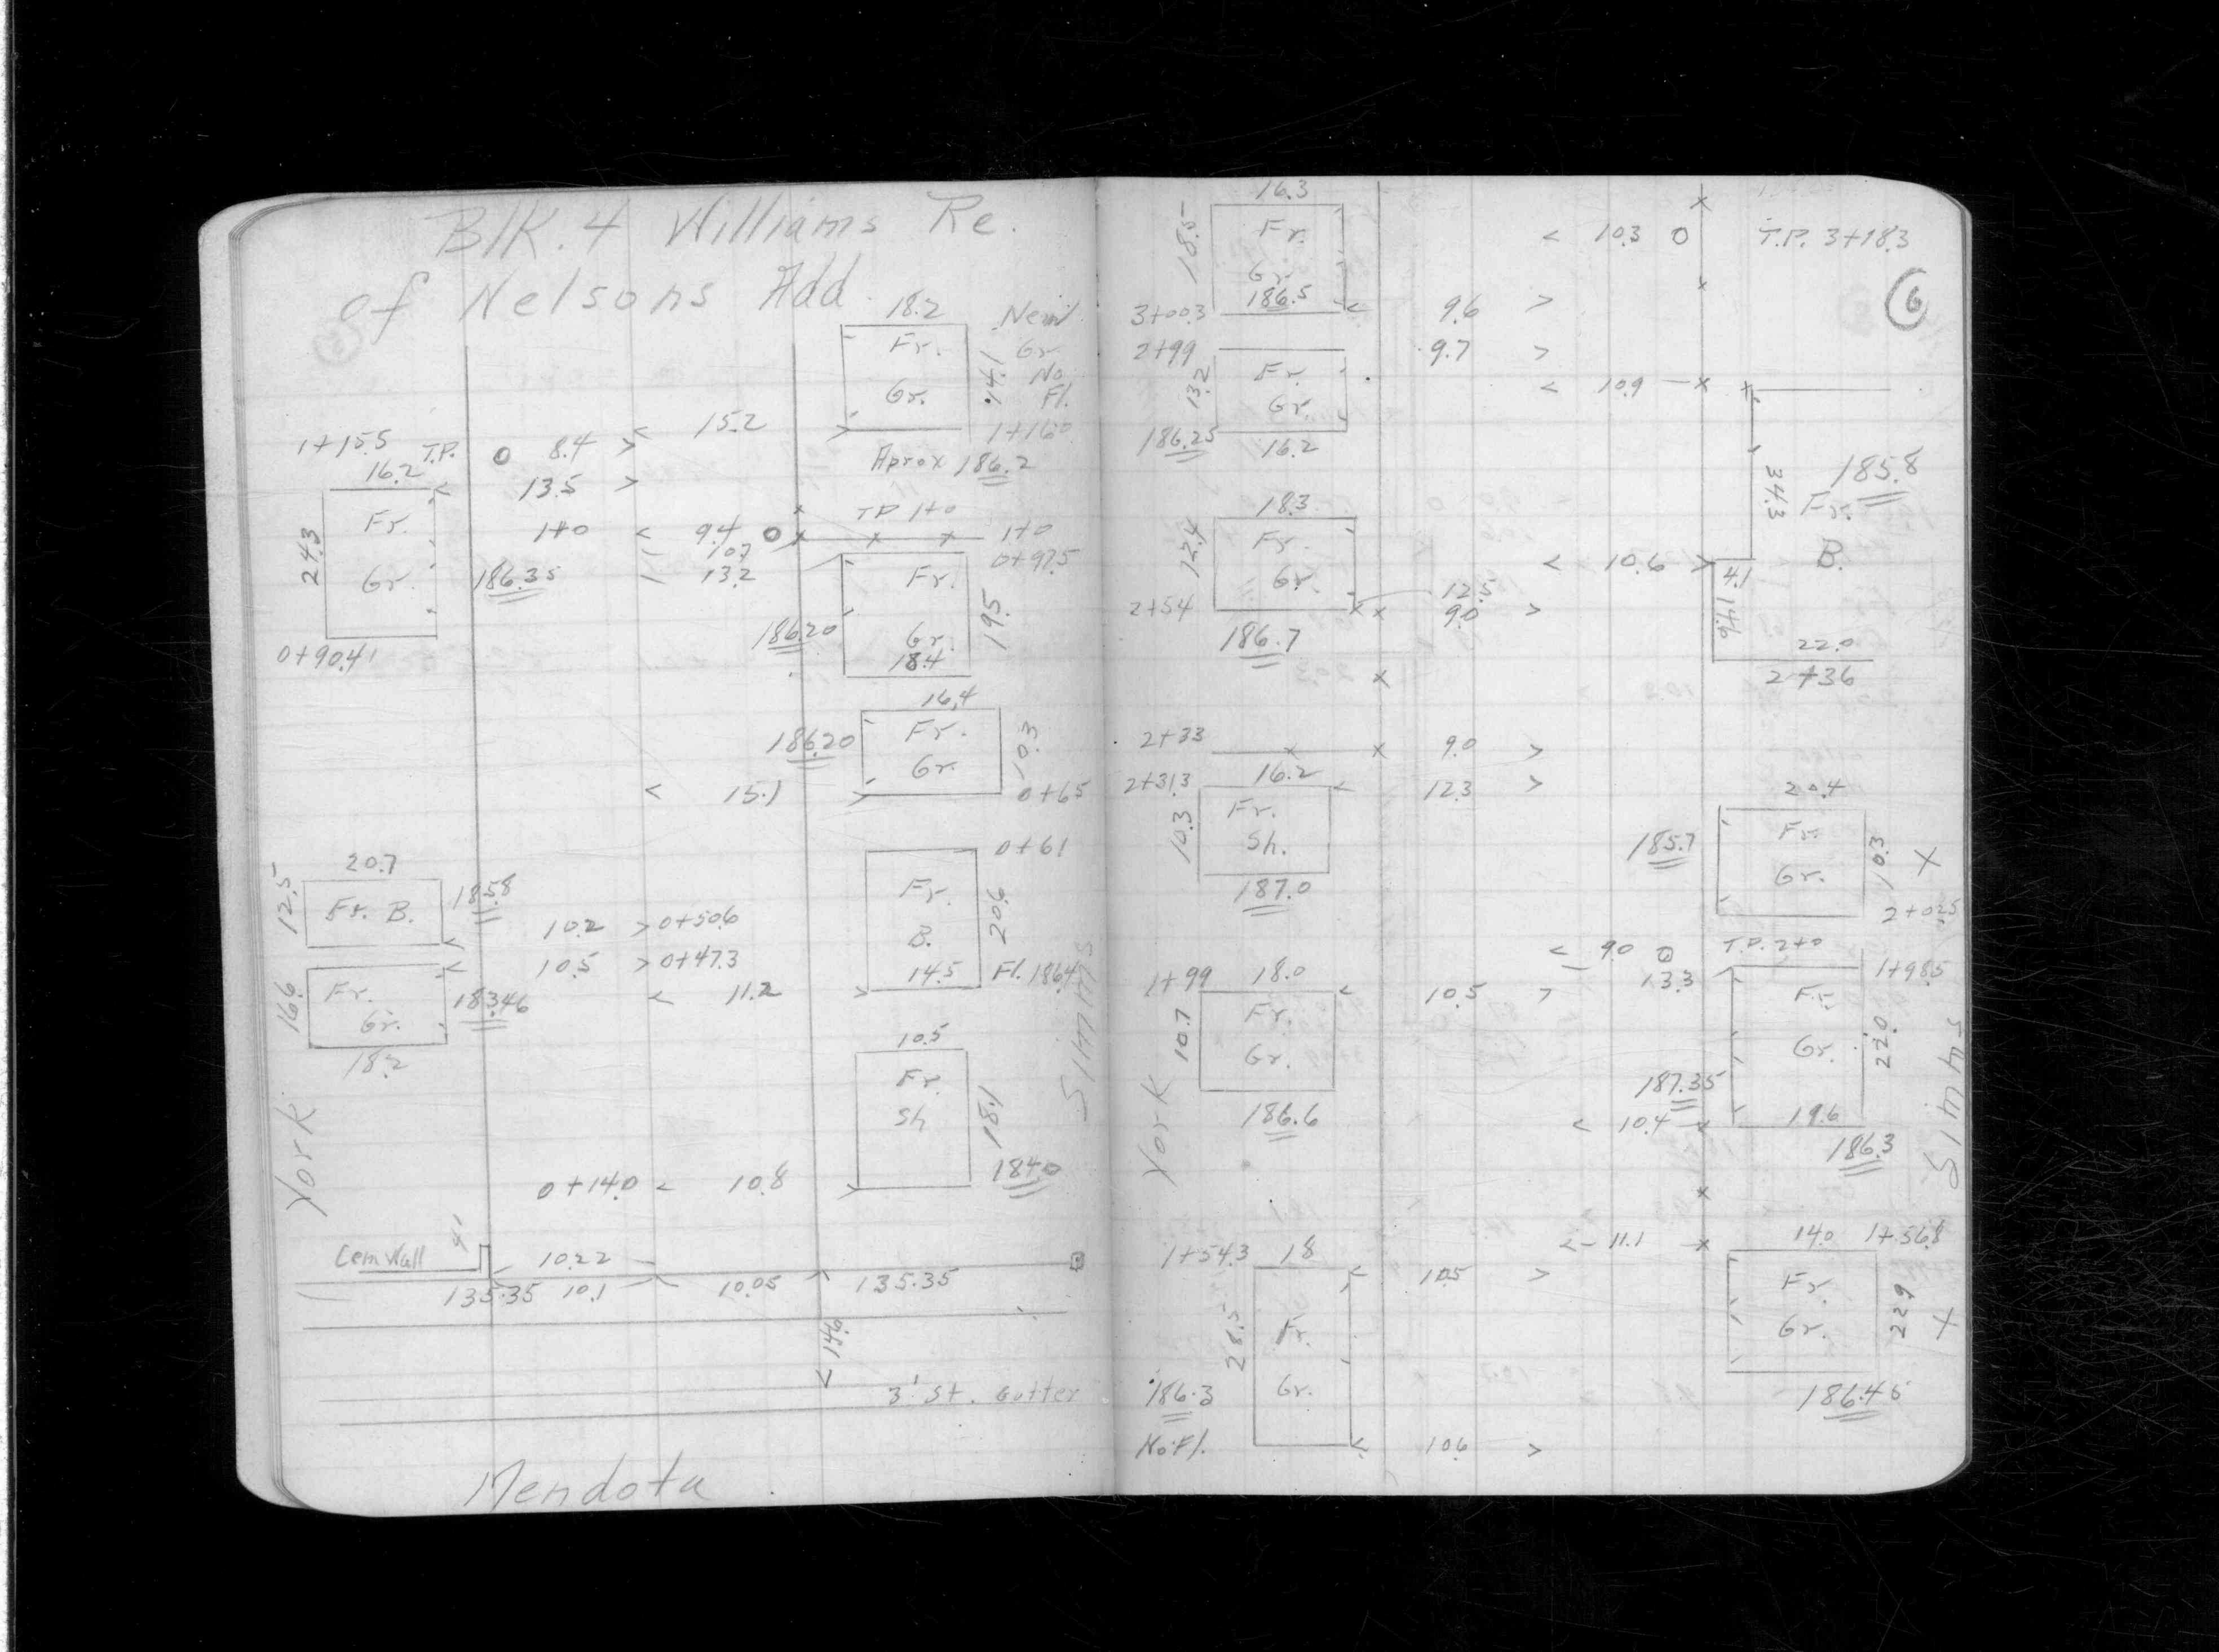 Blk. 4 Williams Re.
of Nelsons Add.
18.2 New
Fr. Gr.
14.1 No
Gr. Fl.
15.2
1+15.5 T.P. 8.4 1+16.0
16.2 Aprox 186.2
13.5
Fr. T.P. 1+0
24.3 1+0 9.4 1+0
10.7 0+97.5
Gr. 186.35 13.2 Fr.
19.5
186.20 Gr.
0+90.4 18.4
16.4
186.20 Fr. 10.3
Gr.
15.1 0+65
0+61
20.7
12.5 Fr. B. 185.8 Fr. 20.6
10.2 0+50.6 B.
10.5 0+47.3 14.5 Fl. 186.4
16.6 Fr. 183.46 11.2
Gr.
18.2 10.5
Fr.
Sh 18.1
York Simms
0+14.0 10.8 184.0
Cem Wall 4' 10.22
135.35 10.1 10.05 135.35
14.6
3' St. Gutter
Mendota
16.3
18.5 Fr. 10.3 T.P. 3+18.3
Gr. 6
186.5
3+00.3 9.6
2+99 9.7
13.2 Fr. 10.9
Gr.
186.25 16.2
34.3 185.8
18.3 Fr.
12.4 Fr. B.
Gr. 10.6 4.1
12.5 14.6
2+54 9.0
186.7 22.0
2+36
2+33 9.0
2+31.3 16.2 12.3 20.4
10.3 Fr. 185.7 Fr. 10.3 X
Sh. Gr.
187.0 2+02.5
9.0 T.P. 2+0
1+99 18.0 13.3 1+98.5
10.5 Fr.
10.7 Fr. Gr. 22.0
Gr. 187.35
186.6 10.4 19.6
186.3
York Simms
11.1 14.0 1+56.8
1+54.3 18 10.5 Fr.
Gr. 22.9 X
28.5 Fr.
186.3 Gr. 186.45
No Fl. 10.6